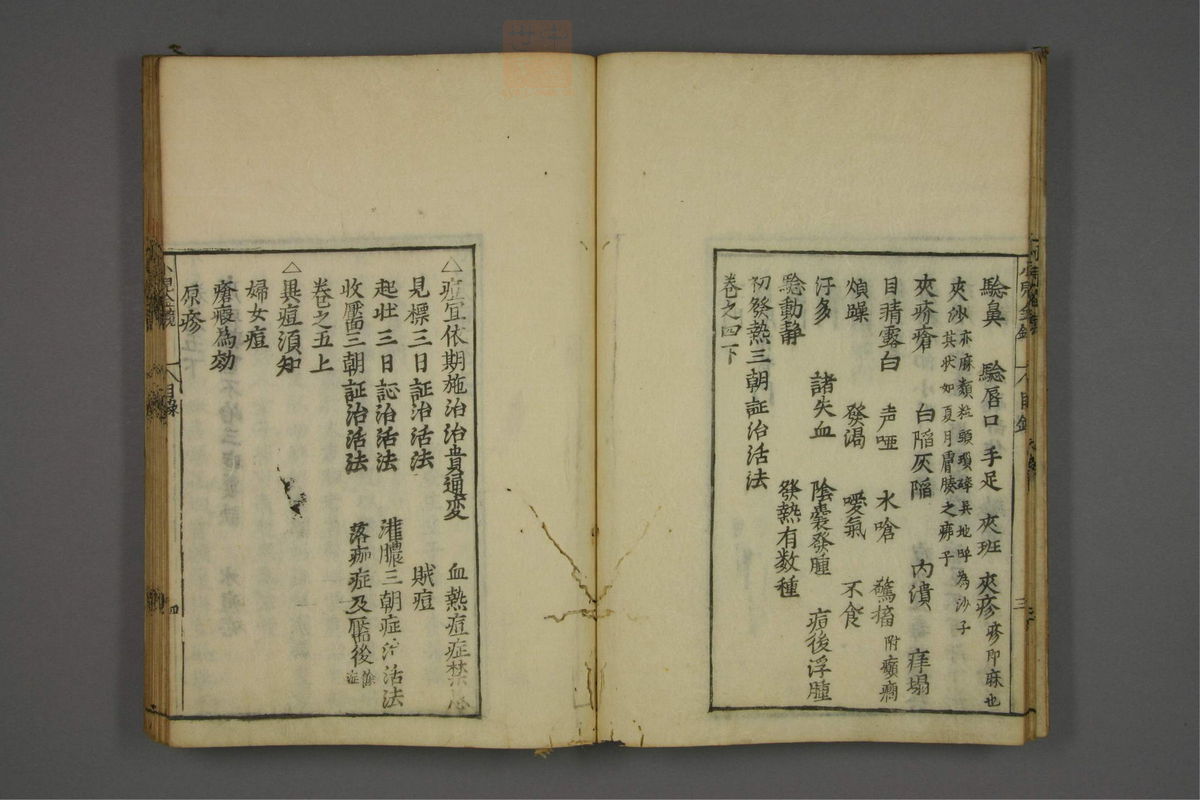 驗鼻 驗唇口 手足 夾班 夾疹 疹即麻也
夾沙 亦麻類粒頭瑣碎吳地呼為沙子
其狀如夏月膚腠之疿子
夾疥瘡 白陷灰陷 內潰 痒塌
目睛露白 声啞 水嗆 驚搐 附癲癇
煩躁 發渴 噯氣 不食
汗多 諸失血 陰囊發腫 痘後浮腫
驗動静 發熱有数種
初發熱三朝証治活法
卷之四下
△痘宜依期施治治貴通变 血熱痘症禁忌
見標三日証治活法 賊痘
起壮三日証治活法 灌膿三朝症治活法
收靨三朝証治活法 落痂症及靨後餘症
卷之五上
△異痘須知
婦女痘
瘡瘢為劾
原疹
目錄
四